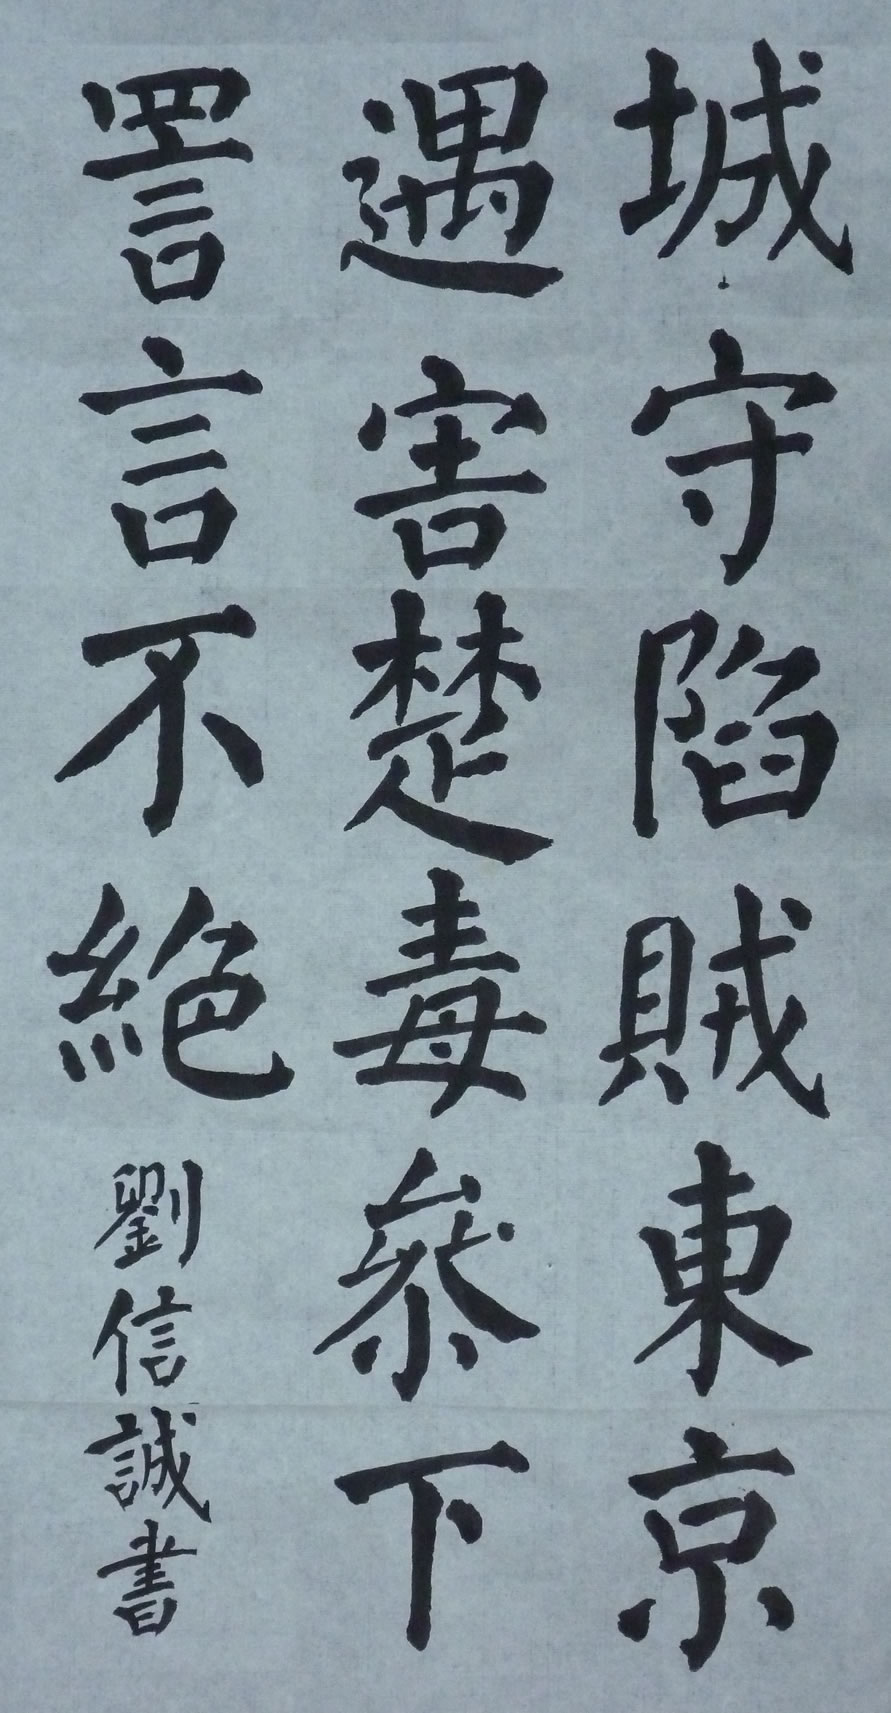 城守陷賊東京
遇害楚毒叅下
詈言不絕
劉信誠書